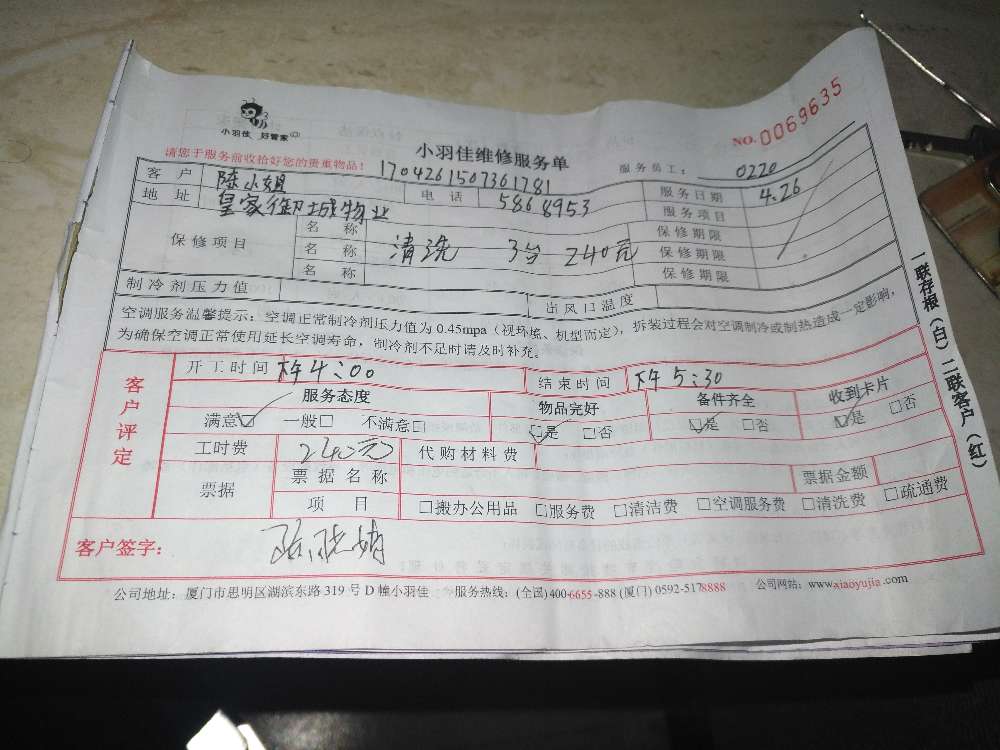 小羽佳 好管家
小羽佳维修服务单
NO. 0069635
请您于服务前收拾好您的贵重物品！
1704261507361781
服务员工： 0220
客 户 陈小姐 电 话 5868953 服务日期 4.26
地 址 皇家御城物业 服务项目
保修项目
名 称 保修期限
名 称 清洗 3台 240元 保修期限
名 称 保修期限
制冷剂压力值 出风口温度
空调服务温馨提示：空调正常制冷剂压力值为 0.45mpa（视环境、机型而定），拆装过程会对空调制冷或制热造成一定影响，
为确保空调正常使用延长空调寿命，制冷剂不足时请及时补充。
一联存根（白）二联客户（红）
客户评定
开工时间 4:00 结束时间 5:30
服务态度 物品完好 备件齐全 收到卡片
满意☑ 一般□ 不满意□ ☑是 □否 ☑是 □否 ☑是 □否
工时费 240元 代购材料费
票据 票据名称 票据金额
项 目 □搬办公用品 □服务费 □清洁费 □空调服务费 □清洗费 □疏通费
客户签字：
公司地址：厦门市思明区湖滨东路 319 号 D 幢小羽佳 服务热线：(全国)400-6655-888 (厦门) 0592-5178888 公司网站：www.xiaoyujia.com